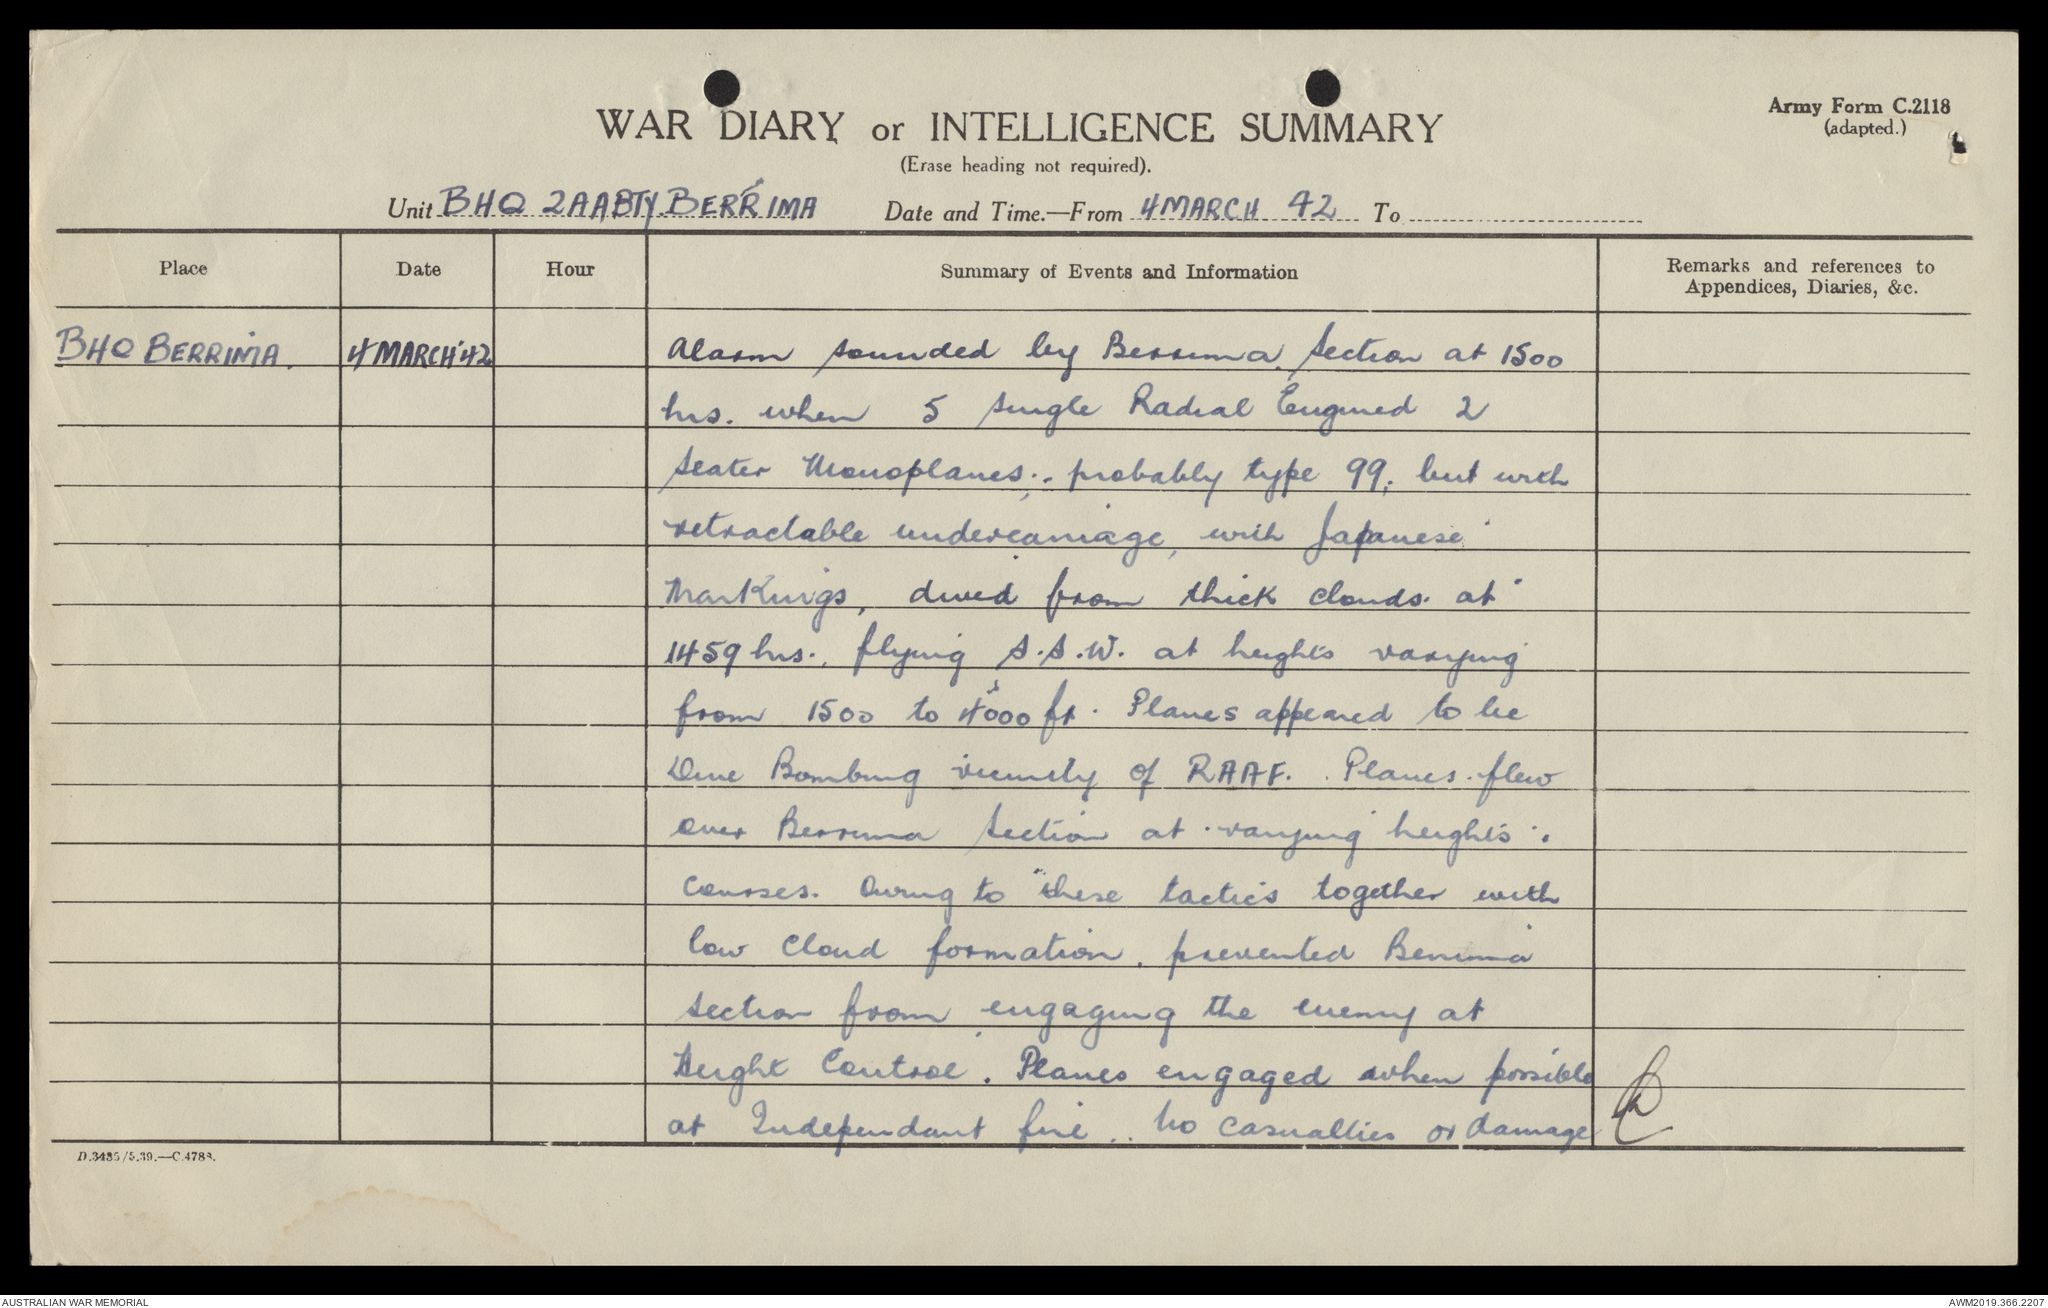 Army Form C.2118
(adapted.)
WAR DIARY or INTELLIGENCE SUMMARY
(Erase heading not required).
Unit BHQ 2AABTY. BERRIMA Date and Time.—From 4 MARCH 42 To
Place Date Hour Summary of Events and Information Remarks and references to Appendices, Diaries, &c.
BHQ BERRIMA. 4 MARCH '42 Alarm sounded by Berrima Section at 1500
hrs. when 5 single Radial Engined 2
seater Monoplanes; probably type 99; but with
retractable undercarriage, with Japanese
Markings, dived from thick clouds at
1459 hrs., flying S.S.W. at heights varying
from 1500 to 4000 ft. Planes appeared to be
Dive Bombing vicinity of RAAF. Planes flew
over Berrima Section at varying heights &
courses. Owing to these tactics together with
low cloud formation, prevented Berrima
section from engaging the enemy at
Height Control. Planes engaged when possible
at Independant fire.. No casualties or damage
D.3485/5.39.—C.4788.
AUSTRALIAN WAR MEMORIAL
AWM2019.366.2207